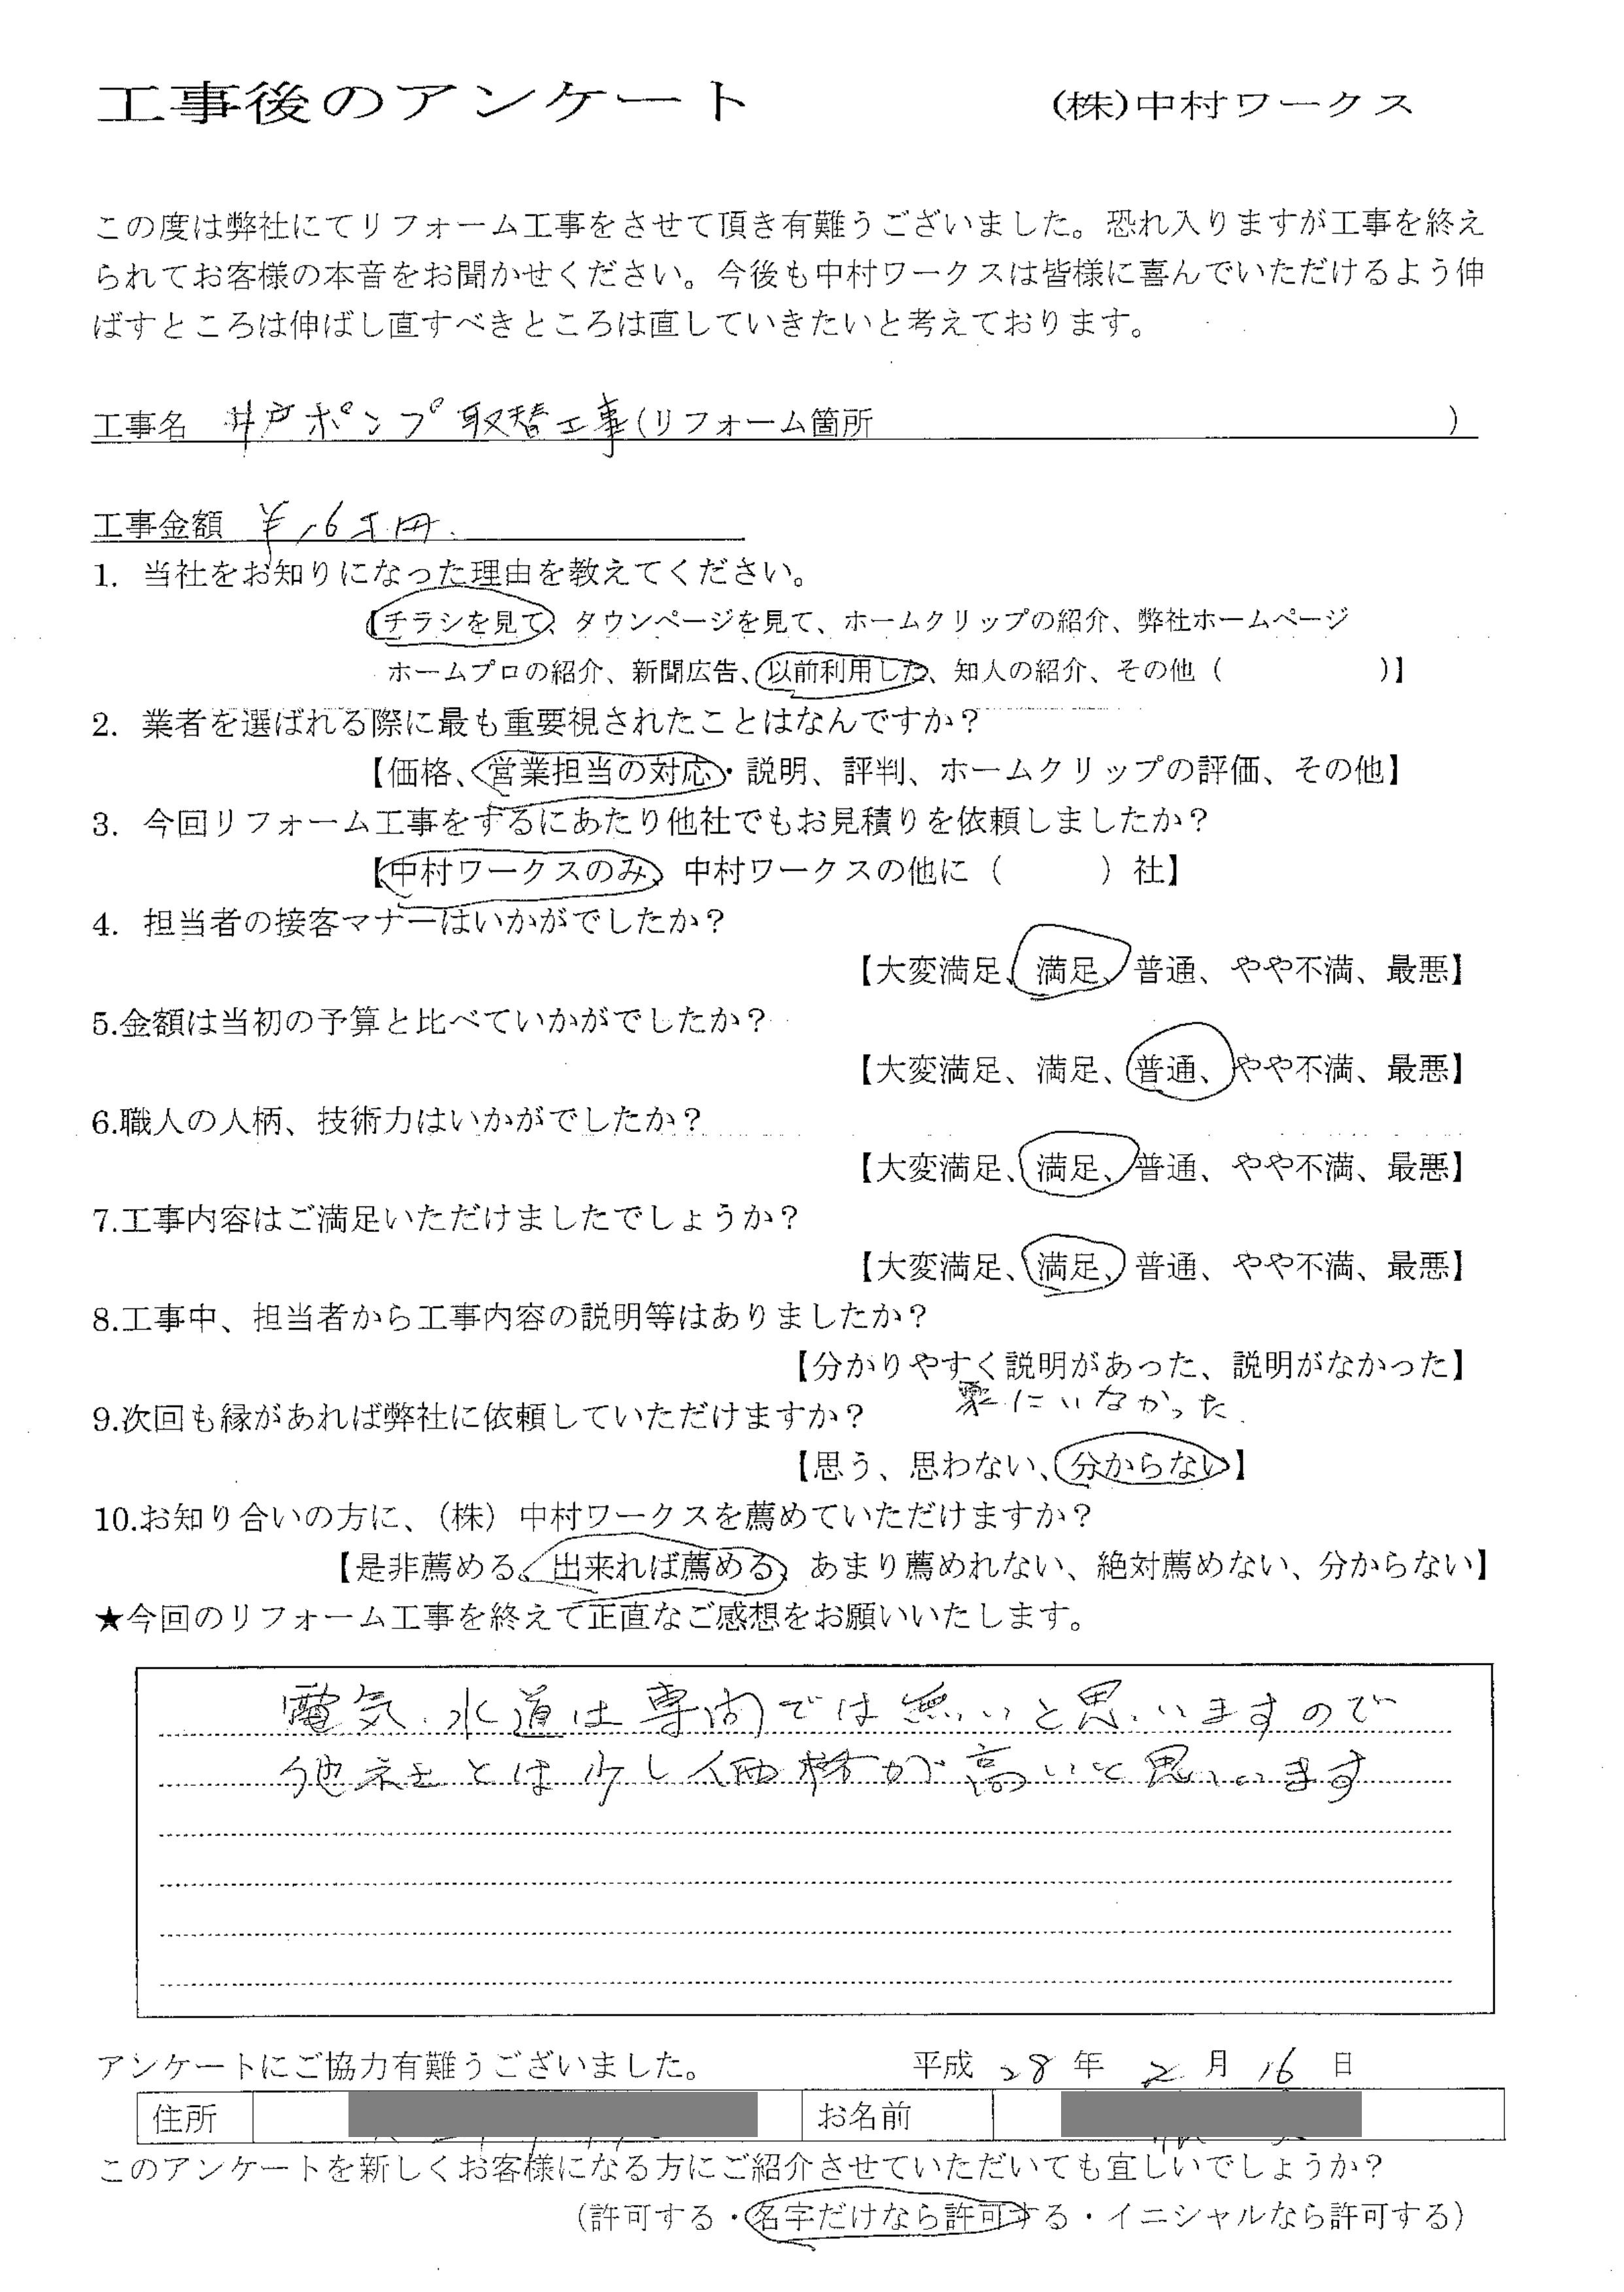 工事後のアンケート　(株)中村ワークス
この度は弊社にてリフォーム工事をさせて頂き有難うございました。恐れ入りますが工事を終え
られてお客様の本音をお聞かせください。今後も中村ワークスは皆様に喜んでいただけるよう伸
ばすところは伸ばし直すべきところは直していきたいと考えております。
工事名　井戸ポンプ取替工事(リフォーム箇所　)
工事金額　¥16万円.
1. 当社をお知りになった理由を教えてください。
【チラシを見て、タウンページを見て、ホームクリップの紹介、弊社ホームページ
ホームプロの紹介、新聞広告、以前利用した、知人の紹介、その他（　)】
2. 業者を選ばれる際に最も重要視されたことはなんですか？
【価格、営業担当の対応・説明、評判、ホームクリップの評価、その他】
3. 今回リフォーム工事をするにあたり他社でもお見積りを依頼しましたか？
【中村ワークスのみ、中村ワークスの他に（　）社】
4. 担当者の接客マナーはいかがでしたか？
【大変満足、満足、普通、やや不満、最悪】
5.金額は当初の予算と比べていかがでしたか？
【大変満足、満足、普通、やや不満、最悪】
6.職人の人柄、技術力はいかがでしたか？
【大変満足、満足、普通、やや不満、最悪】
7.工事内容はご満足いただけましたでしょうか？
【大変満足、満足、普通、やや不満、最悪】
8.工事中、担当者から工事内容の説明等はありましたか？
【分かりやすく説明があった、説明がなかった】
家にいなかった.
9.次回も縁があれば弊社に依頼していただけますか？
【思う、思わない、分からない】
10.お知り合いの方に、（株）中村ワークスを薦めていただけますか？
【是非薦める、出来れば薦める、あまり薦めれない、絶対薦めない、分からない】
★今回のリフォーム工事を終えて正直なご感想をお願いいたします。
電気.水道は専門では無いと思いますので
他社とは少し価格が高いと思います
アンケートにご協力有難うございました。　平成 28 年 2 月 16 日
住所　お名前
このアンケートを新しくお客様になる方にご紹介させていただいても宜しいでしょうか？
（許可する・名字だけなら許可する・イニシャルなら許可する）